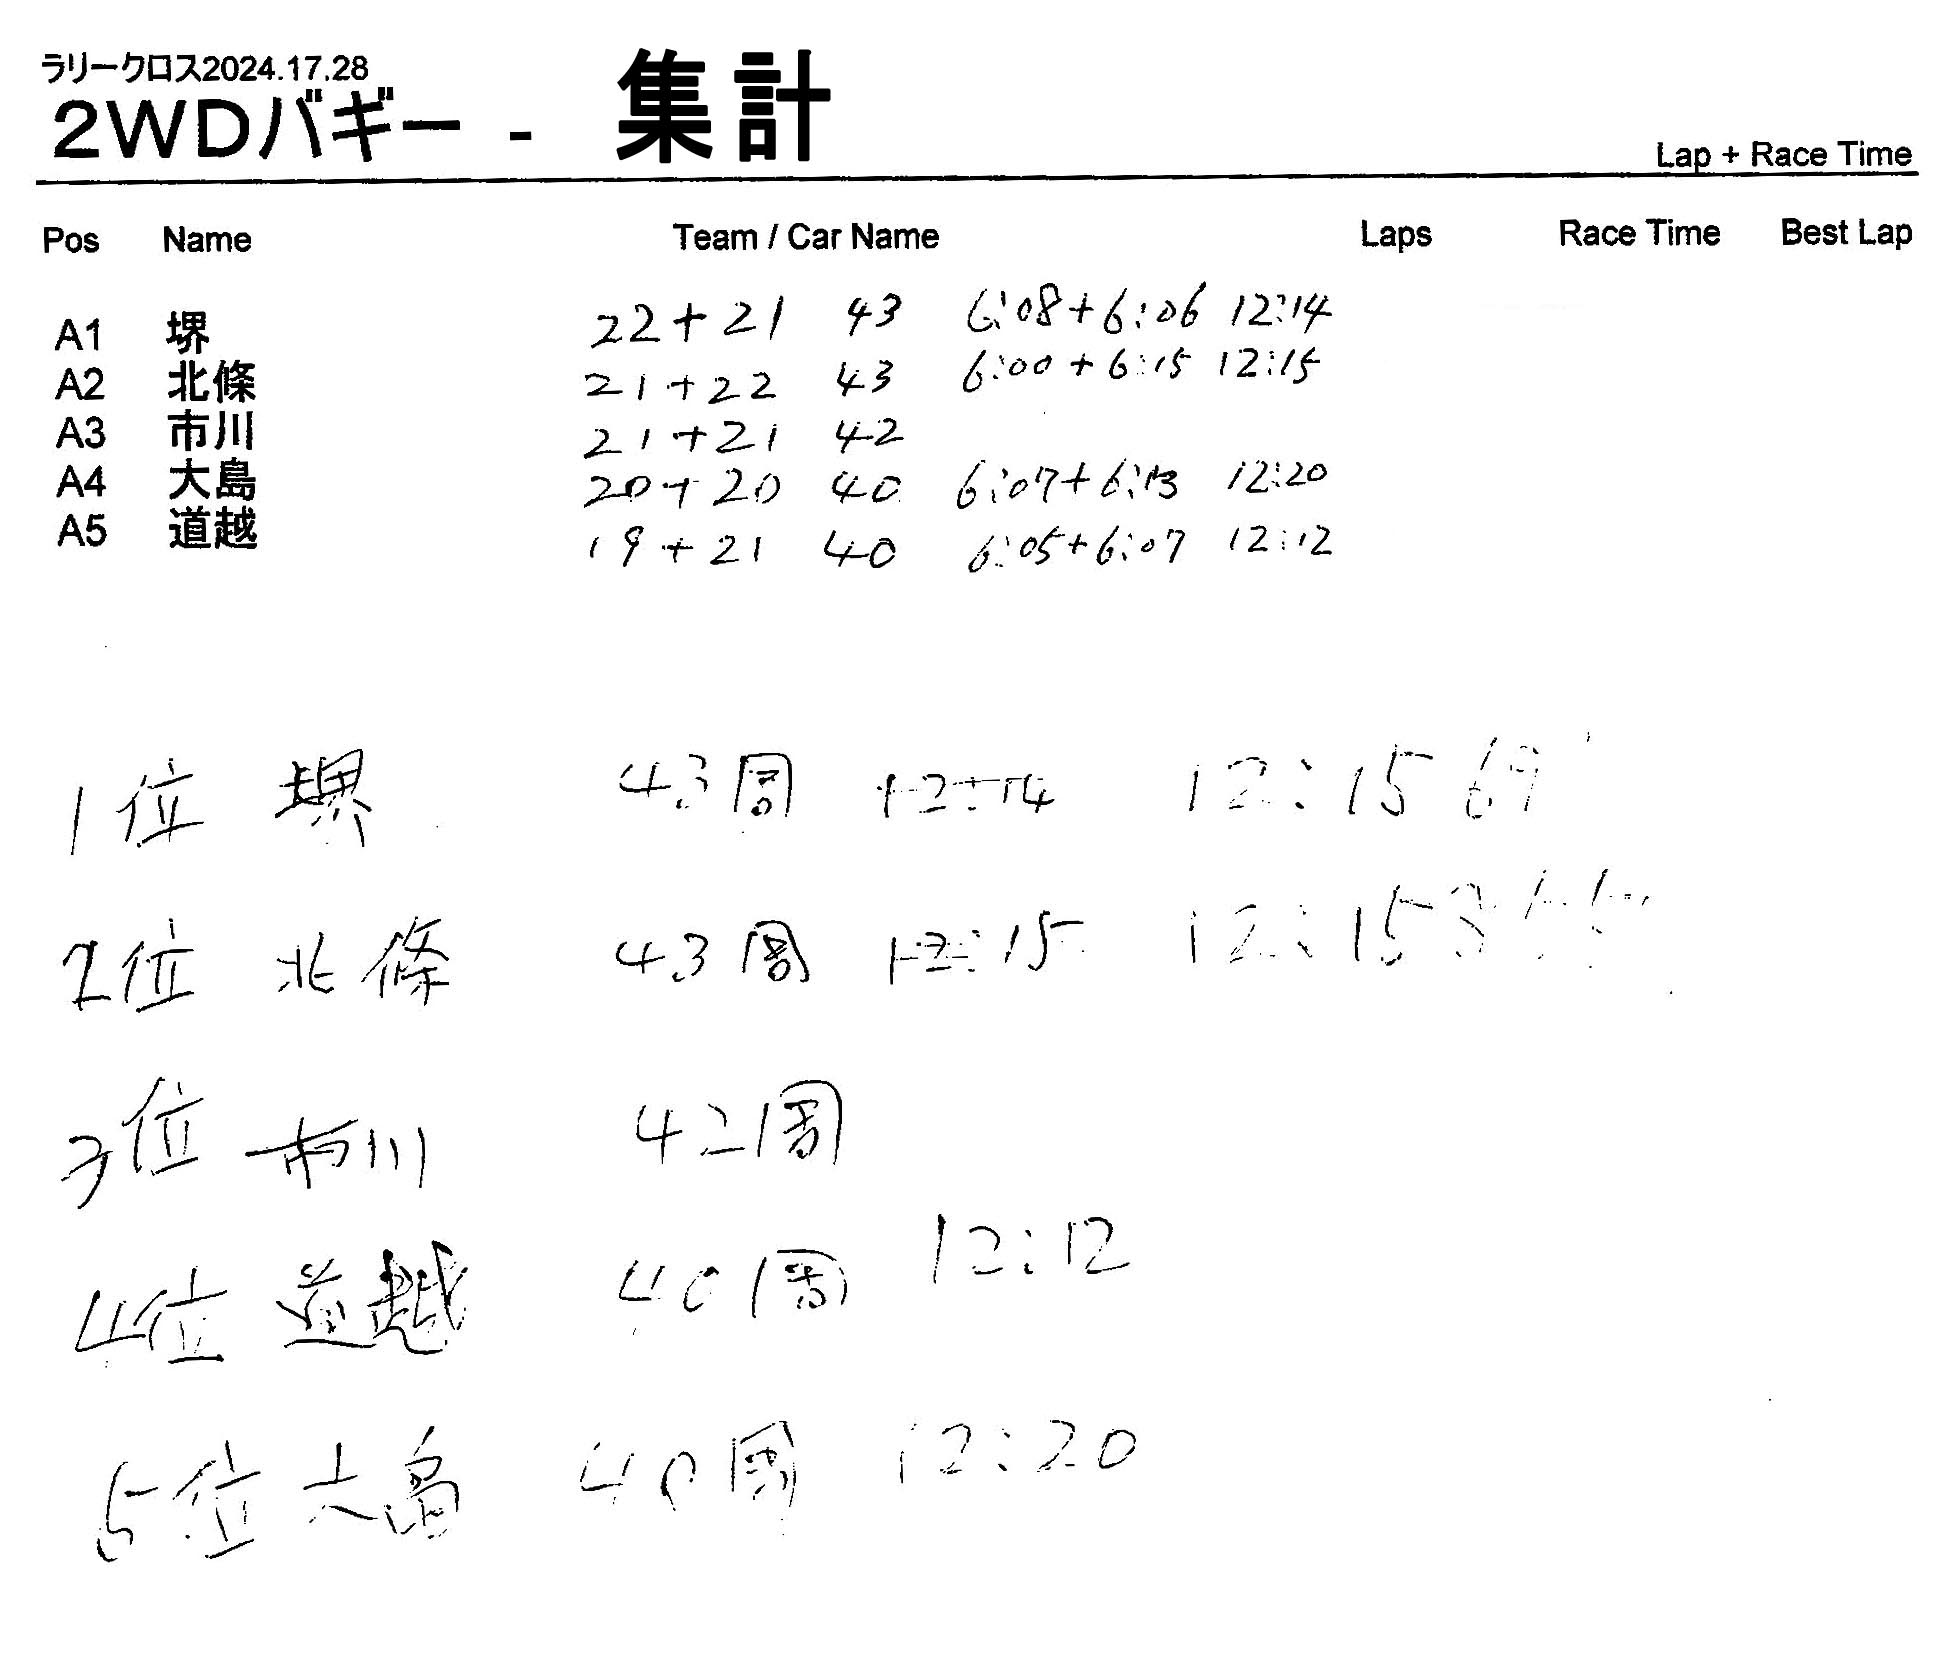 ラリークロス2024.17.28
2WDバギー - 集計
Lap + Race Time
Pos Name Team / Car Name Laps Race Time Best Lap
A1 堺 22+21 43 6:08+6:06 12:14
A2 北條 21+22 43 6:00+6:15 12:15
A3 市川 21+21 42
A4 大島 20+20 40 6:07+6:13 12:20
A5 道越 19+21 40 6:05+6:07 12:12
1位 堺 43周 12:14 12:15
2位 北條 43周 12:15 12:15
3位 市川 42周
4位 道越 40周 12:12
5位 大島 40周 12:20